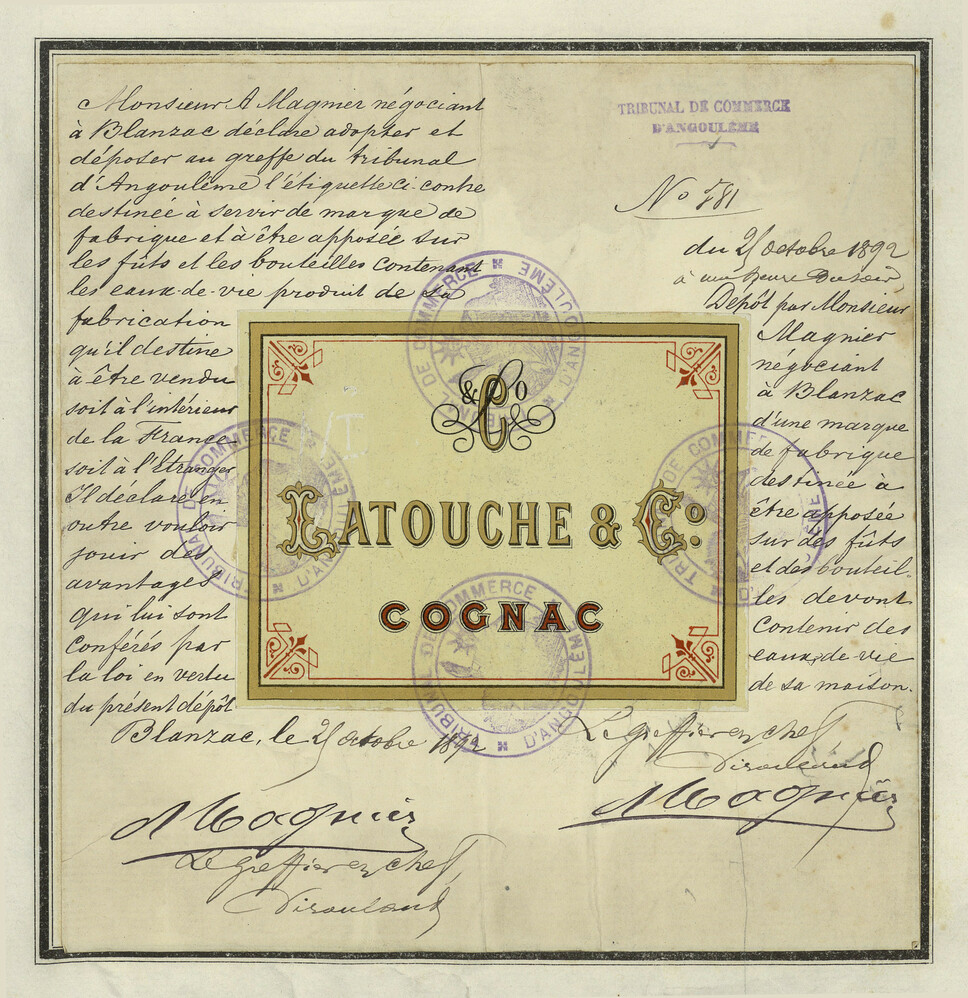 Monsieur A Magnier négociant
à Blanzac déclare adopter et
déposer au greffe du tribunal
d'Angoulême l'étiquette ci-contre
destinée à servir de marque de
fabrique et à être apposée sur
les fûts et les bouteilles contenant
les eaux-de-vie produit de sa
fabrication
qu'il destine
à être vendu
soit à l'intérieur
de la France
soit à l'Etranger
Il déclare en
outre vouloir
jouir des
avantages
qui lui sont
conférés par
la loi en vertu
du présent dépôt
Blanzac, le 25 octobre 1892
AMagnier
Le greffier en chef
TRIBUNAL DE COMMERCE
D'ANGOULÊME
No 581
du 25 octobre 1892
à une heure du soir
Dépôt par Monsieur
Magnier
négociant
à Blanzac
d'une marque
de fabrique
destinée à
être apposée
sur des fûts
et des bouteil-
les devant
contenir des
eaux-de-vie
de sa maison.
Le greffier en chef
AMagnier
& Co
LATOUCHE & Co.
COGNAC
TRIBUNAL DE COMMERCE D'ANGOULÊME
TRIBUNAL DE COMMERCE D'ANGOULÊME
TRIBUNAL DE COMMERCE D'ANGOULÊME
TRIBUNAL DE COMMERCE D'ANGOULÊME